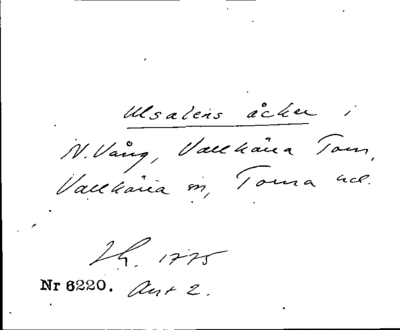 Ulsalens åcker i
N. Vång, Vallkärra Torn,
Vallkärra sn, Torna hd.
Lh. 1775
Nr 6220. Akt 2.